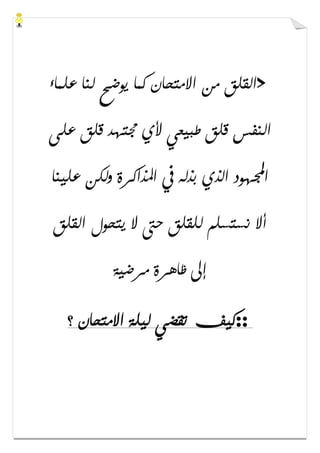 >القلق من الامتحان كما يوضح لنا علماء
النفس قلق طبيعي لأي مجتهد قلق على
المجهود الذي بذله في المذاكرة ولكن علينا
ألا نستسلم للقلق حتى لا يتحول القلق
إلى ظاهرة مرضية
::كيف تقضي ليلة الامتحان ؟